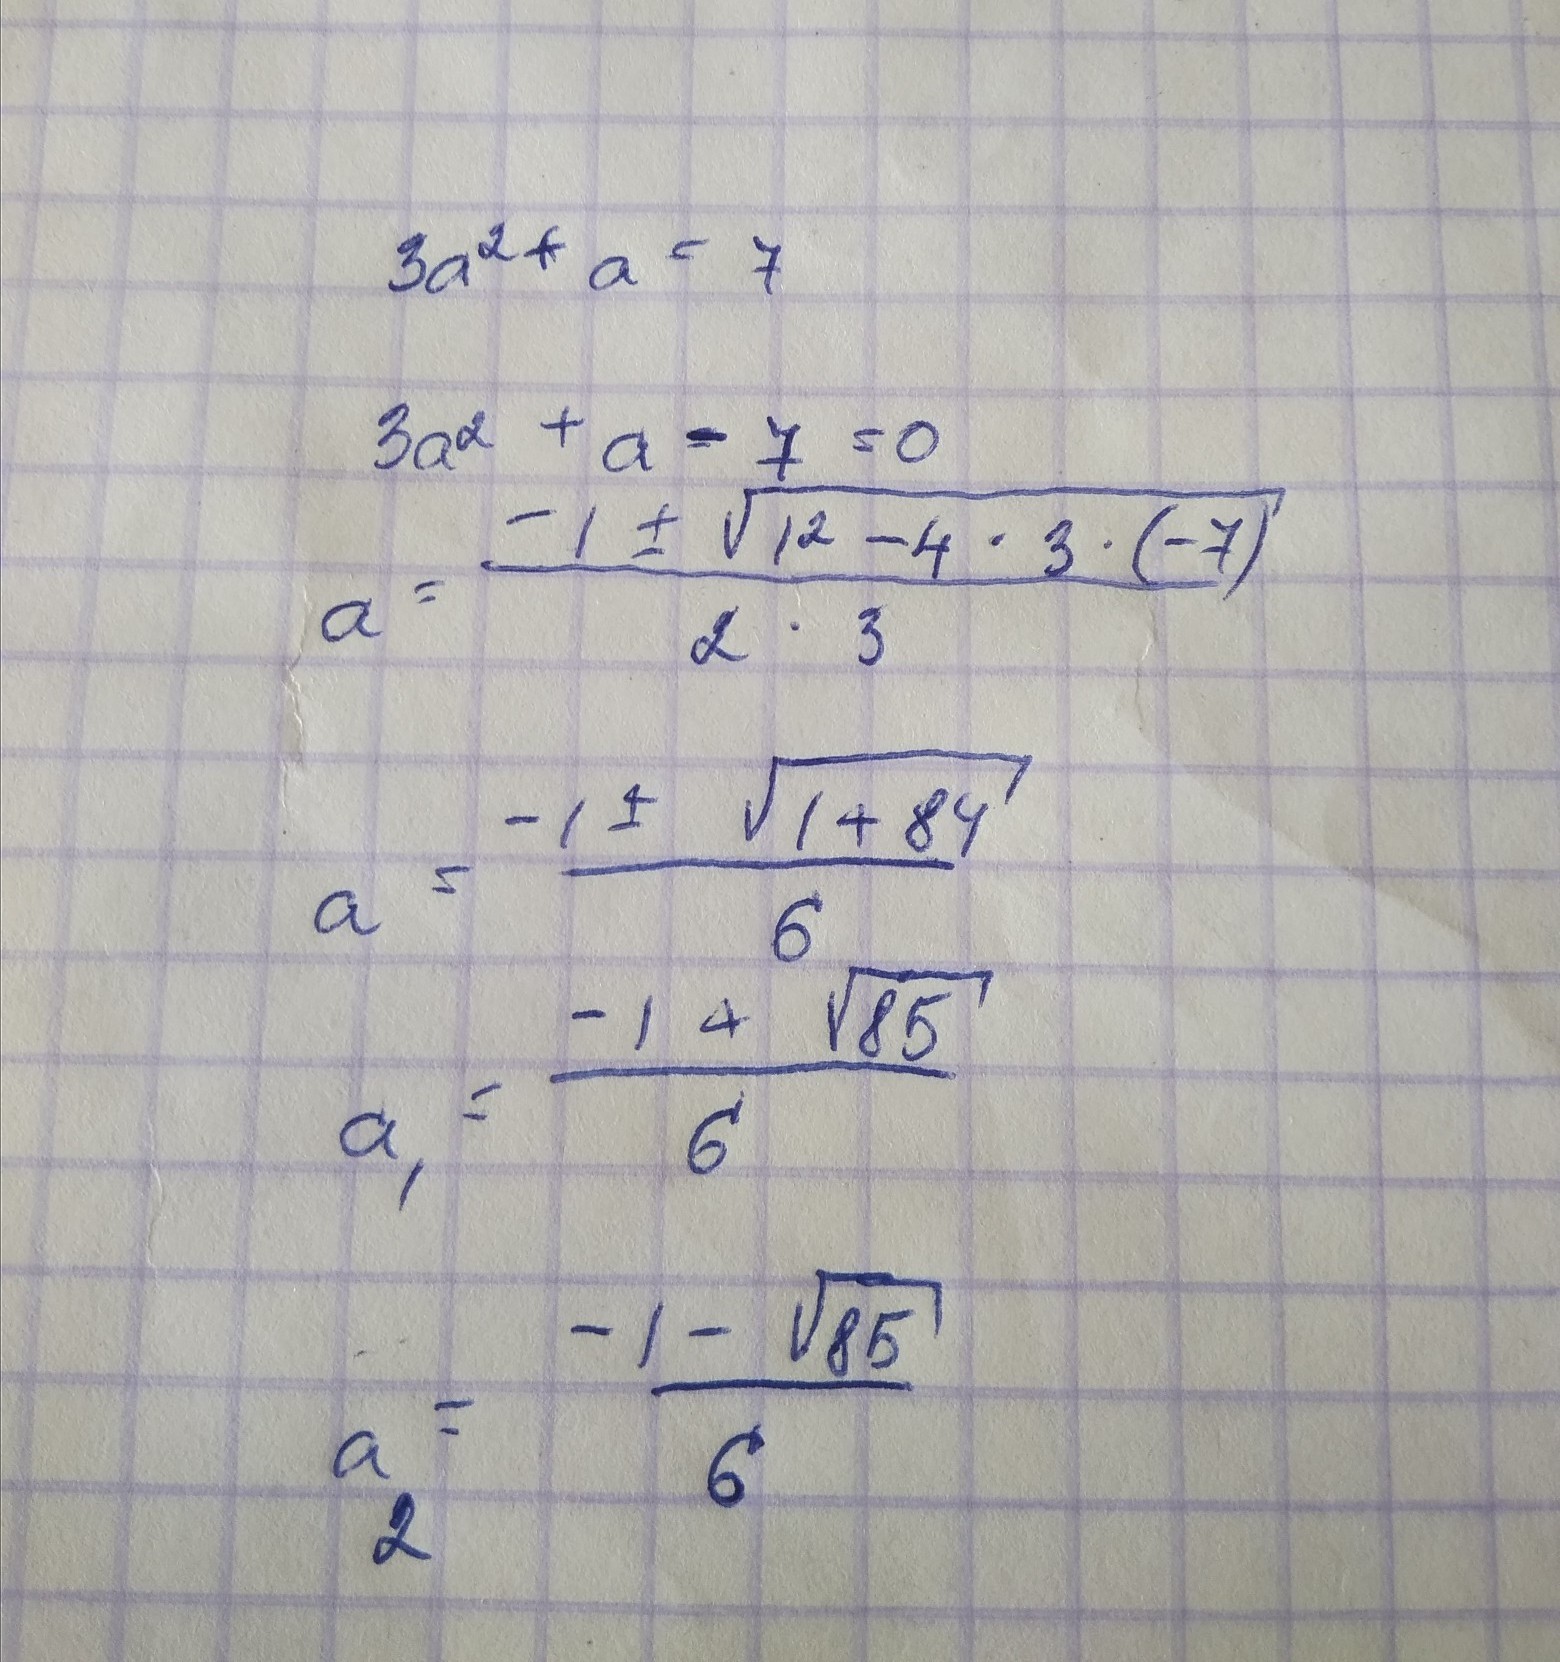 3a² + a = 7
3a² + a - 7 = 0
a = (-1 ± √(1² - 4 · 3 · (-7))) / (2 · 3)
a = (-1 ± √(1 + 84)) / 6
a₁ = (-1 + √85) / 6
a₂ = (-1 - √85) / 6